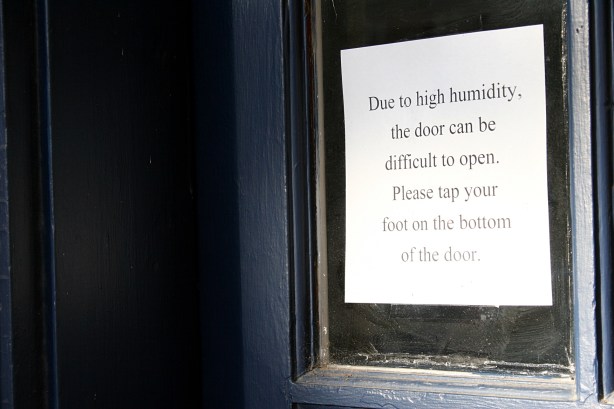 Due to high humidity,
the door can be
difficult to open.
Please tap your
foot on the bottom
of the door.